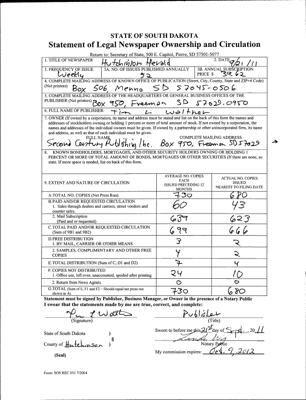 STATE OF SOUTH DAKOTA
Statement of Legal Newspaper Ownership and Circulation
Return to: Secretary of State, 500 E. Capitol, Pierre, SD 57501-5077
1. TITLE OF NEWSPAPER
Hutchinson Herald
2. DATE
9/21/11
3. FREQUENCY OF ISSUE
Weekly
3A. NO. OF ISSUES PUBLISHED ANNUALLY
52
3B. ANNUAL SUBSCRIPTION
PRICE $ 39.62
4. COMPLETE MAILING ADDRESS OF KNOWN OFFICE OF PUBLICATION (Street, City, County, State and ZIP+4 Code)
(Not printers)
Box 506, Menno SD 57045-0506
5. COMPLETE MAILING ADDRESS OF THE HEADQUARTERS OF GENERAL BUSINESS OFFICES OF THE
PUBLISHER (Not printers)
Box 950, Freeman SD 57029-0950
6. FULL NAME OF PUBLISHER:
Tim L. Waltner
7. OWNER (If owned by a corporation, its name and address must be stated and list on the back of this form the names and
addresses of stockholders owning or holding 1 percent or more of total amount of stock. If not owned by a corporation, the
names and addresses of the individual owners must be given. If owned by a partnership or other unincorporated firm, its name
and address, as well as that of each individual must be given.
FULL NAME
COMPLETE MAILING ADDRESS
Second Century Publishing Inc. Box 950, Freeman SD 57029
8. KNOWN BONDHOLDERS, MORTGAGEES, AND OTHER SECURITY HOLDERS OWNING OR HOLDING 1
PERCENT OR MORE OF TOTAL AMOUNT OF BONDS, MORTGAGES OR OTHER SECURITIES (If there are none, so
state. If more space is needed, list on back of this form.
9. EXTENT AND NATURE OF CIRCULATION
AVERAGE NO. COPIES
EACH
ISSUE PRECEDING 12
MONTHS
ACTUAL NO. COPIES
ISSUED
NEAREST TO FILING DATE
A. TOTAL NO. COPIES (Net Press Run)
730
680
B. PAID AND/OR REQUESTED CIRCULATION
1. Sales through dealers and carriers, street vendors and
counter sales.
60
43
2. Mail Subscription
(Paid and or requested)
639
623
C. TOTAL PAID AND/OR REQUESTED CIRCULATION
(Sum of 9B1 and 9B2)
699
666
D. FREE DISTRIBUTION
1. BY MAIL, CARRIER OR OTHER MEANS
3
2
2. SAMPLES, COMPLIMENTARY AND OTHER FREE
COPIES
4
2
E. TOTAL DISTRIBUTION (Sum of C, D1 and D2)
7
4
F. COPIES NOT DISTRIBUTED
1. Office use, left over, unaccounted, spoiled after printing
24
10
2. Return from News Agents
0
0
G. TOTAL (Sum of E, F1 and F2 - Should equal net press run
shown in A)
730
680
Statement must be signed by Publisher, Business Manager, or Owner in the presence of a Notary Public
I swear that the statements made by me are true, correct, and complete:
Publisher
(Signature)
(Title)
State of South Dakota )
County of Hutchinson )
(Seal)
Sworn to before me this 21st day of Sept. 2011
Notary Public
My commission expires: Oct. 9, 2012
Form: SOS REC 051 7/2004